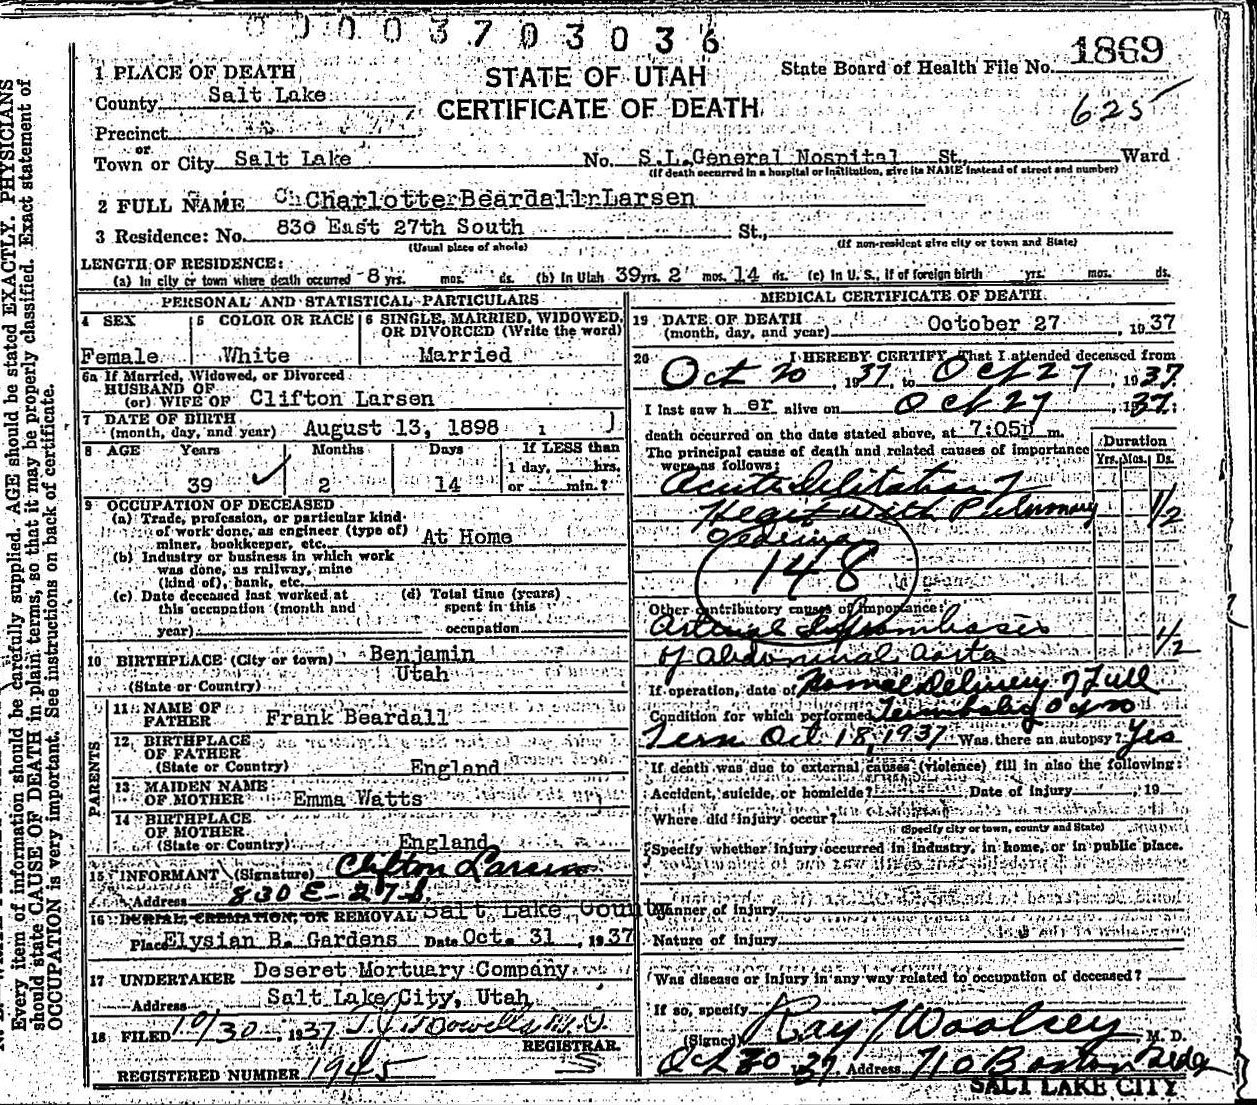 0003703036
1869
625
STATE OF UTAH
CERTIFICATE OF DEATH
State Board of Health File No.
1 PLACE OF DEATH
County Salt Lake
Precinct
or
Town or City Salt Lake No. S.L.General Nospital St., Ward
(If death occurred in a hospital or institution, give its NAME instead of street and number)
2 FULL NAME Charlotte Beardall Larsen
3 Residence: No. 830 East 27th South St.,
(Usual place of abode) (If non-resident give city or town and State)
LENGTH OF RESIDENCE:
(a) In city or town where death occurred 8 yrs. mos. ds. (b) In Utah 39 yrs. 2 mos. 14 ds. (c) In U. S., if of foreign birth yrs. mos. ds.
PERSONAL AND STATISTICAL PARTICULARS
4 SEX 5 COLOR OR RACE 6 SINGLE, MARRIED, WIDOWED, OR DIVORCED (Write the word)
Female White Married
6a If Married, Widowed, or Divorced
HUSBAND OF
(or) WIFE OF Clifton Larsen
7 DATE OF BIRTH
(month, day, and year) August 13, 1898
8 AGE Years Months Days If LESS than
1 day, hrs.
39 2 14 or min.?
9 OCCUPATION OF DECEASED
(a) Trade, profession, or particular kind
of work done, as engineer (type of)
miner, bookkeeper, etc. At Home
(b) Industry or business in which work
was done, as railway, mine
(kind of), bank, etc.
(c) Date deceased last worked at (d) Total time (years)
this occupation (month and spent in this
year) occupation
10 BIRTHPLACE (City or town) Benjamin
(State or Country) Utah
PARENTS
11 NAME OF
FATHER Frank Beardall
12 BIRTHPLACE
OF FATHER
(State or Country) England
13 MAIDEN NAME
OF MOTHER Emma Watts
14 BIRTHPLACE
OF MOTHER
(State or Country) England
15 INFORMANT (Signature) Clifton Larsen
Address 830 E - 27 S.
16 BURIAL, CREMATION, OR REMOVAL Salt Lake County
Place Elysian B. Gardens Date Oct. 31, 1937
17 UNDERTAKER Deseret Mortuary Company
Address Salt Lake City, Utah
18 FILED 10/30, 1937
REGISTRAR.
REGISTERED NUMBER 1945
MEDICAL CERTIFICATE OF DEATH
19 DATE OF DEATH
(month, day, and year) October 27, 1937
20 I HEREBY CERTIFY That I attended deceased from
Oct 20, 1937, to Oct 27, 1937
I last saw her alive on Oct 27, 1937:
death occurred on the date stated above, at 7:05p m.
The principal cause of death and related causes of importance
were as follows:
Duration
Yrs. Mos. Ds.
Acute Dilitation of
Heart with Pulmonary 1/2
Oedema
148
Other contributory causes of importance:
Arterial Thrombosis
of abdominal aorta 1/2
If operation, date of Normal Delivery of Full
Condition for which performed
Term Oct 18, 1937 Was there an autopsy? Yes
If death was due to external causes (violence) fill in also the following:
Accident, suicide, or homicide? Date of injury , 19
Where did injury occur?
(Specify city or town, county and State)
Specify whether injury occurred in industry, in home, or in public place.
Manner of injury
Nature of injury
Was disease or injury in any way related to occupation of deceased?
If so, specify
(Signed) Ray T Woolsey M. D.
Oct 30 1937 Address 710 Boston Bldg
SALT LAKE CITY
Every item of information should be carefully supplied. AGE should be stated EXACTLY. PHYSICIANS
should state CAUSE OF DEATH in plain terms, so that it may be properly classified. Exact statement of
OCCUPATION is very important. See instructions on back of certificate.